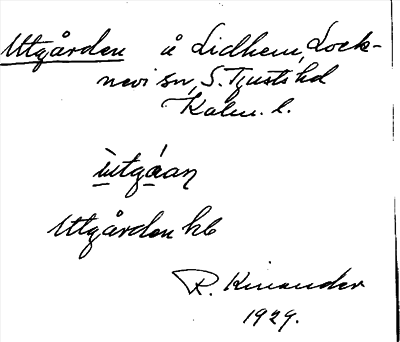 Utgården å Lidhem, Lock-
nevi sn, S. Tjusts hd
Kalm. l.
ùtgáan
Utgården hb
R. Kinander
1929.